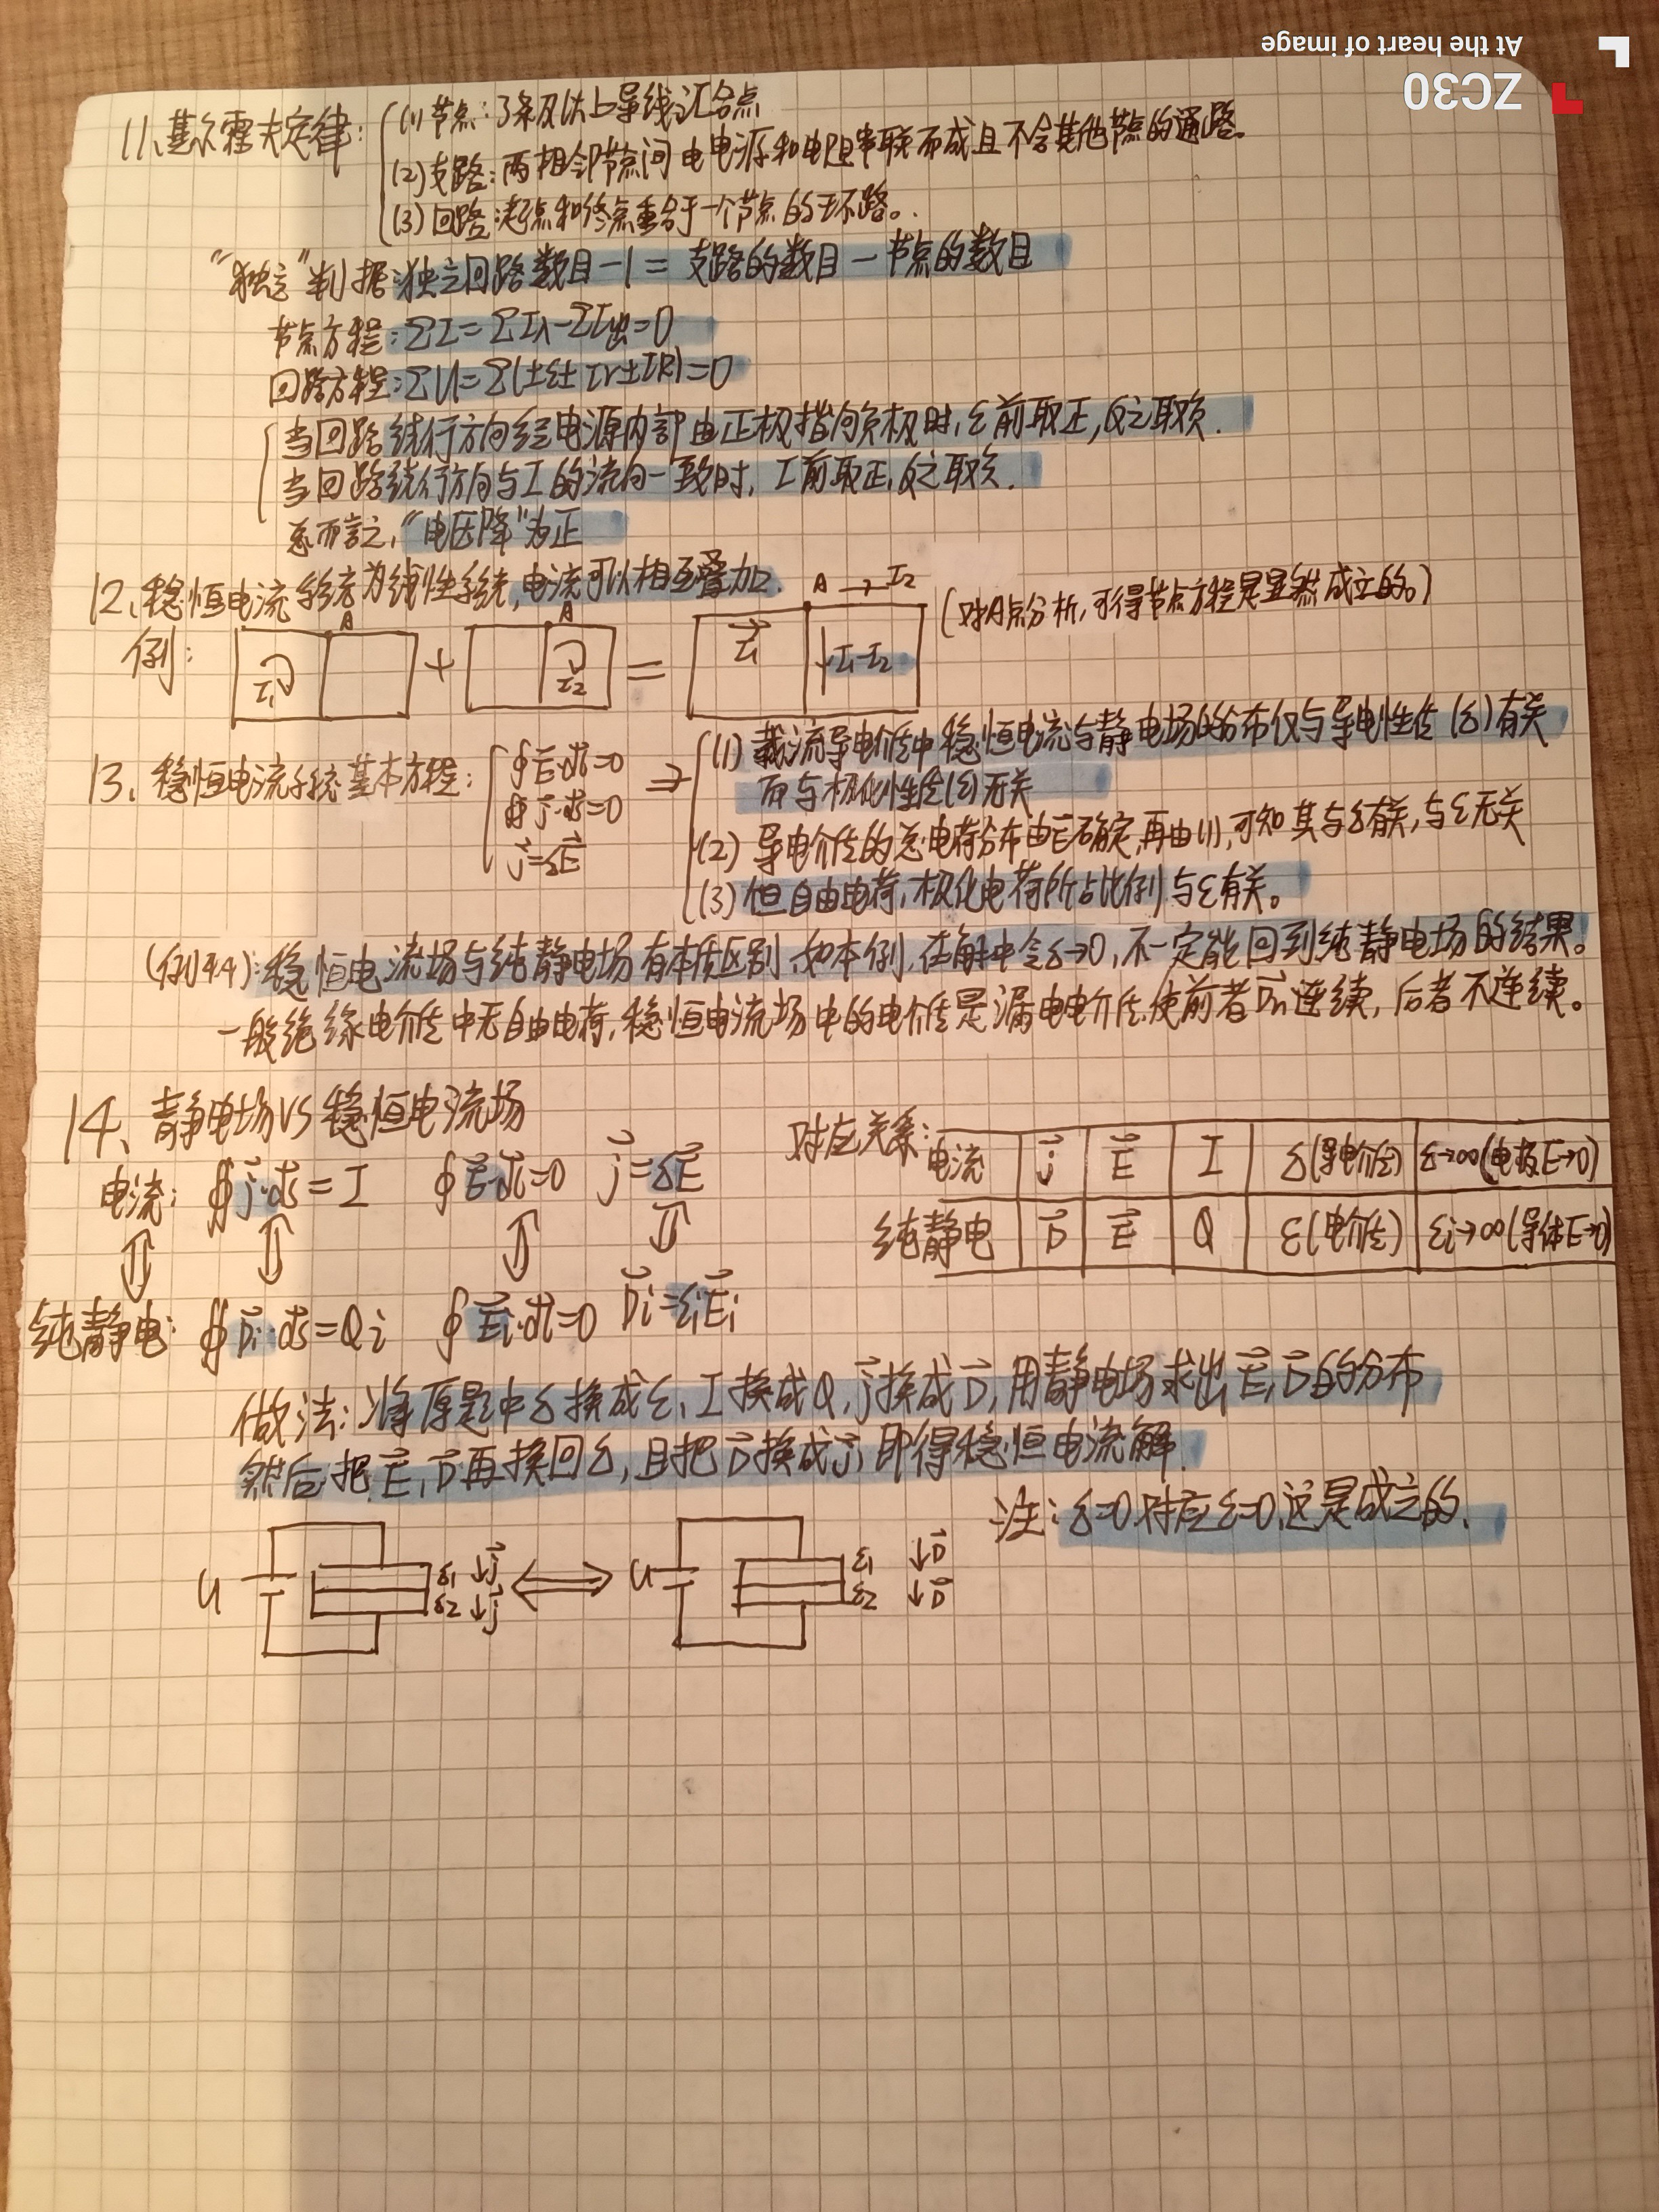 11、基尔霍夫定律:
(1) 节点:3条及以上导线汇合点
(2) 支路:两相邻节点间由电源和电阻串联而成且不含其他节点的通路。
(3) 回路:起点和终点重合于一个节点的环路。
"独立"判据:独立回路数目-1=支路的数目-节点的数目
节点方程:ΣI=ΣI入-ΣI出=0
回路方程:ΣU=Σ(±ε±Ir±IR)=0
当回路绕行方向经电源内部由正极指向负极时,ε前取正,反之取负.
当回路绕行方向与I的流向一致时,I前取正,反之取负.
总而言之,"电压降"为正
12、稳恒电流系统为线性系统,电流可以相互叠加.
例: I₁ A + A I₂ = I₁ A→I₂ ↓I₁-I₂ (对A点分析,可得节点方程是显然成立的。)
13、稳恒电流系统基本方程:
∮E⃗·dl⃗=0
∯j⃗·ds⃗=0
j⃗=σE⃗
⇒
(1) 载流导电介质中稳恒电流与静电场的分布仅与导电性质(σ)有关
而与极化性质(ε)无关
(2) 导电介质的总电荷分布由E⃗确定,再由(1),可知其与σ有关,与ε无关
(3) 但自由电荷,极化电荷所占比例与ε有关。
(例4.4):稳恒电流场与纯静电场有本质区别,如本例,在解中令σ→0,不一定能回到纯静电场的结果。
一般绝缘电介质中无自由电荷,稳恒电流场中的电介质是漏电电介质,使前者Dn连续,后者不连续。
14、静电场VS稳恒电流场
电流: ∯j⃗·ds⃗=I ∮E⃗·dl⃗=0 j⃗=σE⃗
⇕ ⇕ ⇕ ⇕
纯静电: ∯D⃗i·ds⃗=Qi ∮E⃗i·dl⃗=0 D⃗i=εiE⃗i
对应关系:
电流 j⃗ E⃗ I σ(导电介质) σ→∞(电极E→0)
纯静电 D⃗ E⃗ Q ε(电介质) εi→∞(导体E→0)
做法:将原题中σ换成ε、I换成Q,j⃗换成D⃗,用静电场求出E⃗,D⃗的分布
然后把E⃗,D⃗再换回σ,且把D⃗换成j⃗,即得稳恒电流解.
注:σ=0对应ε=0,这是成立的.
U σ1 ↓j⃗ ⟺ U ε1 ↓D⃗
σ2 ↓j⃗ ε2 ↓D⃗
At the heart of image
ZC30